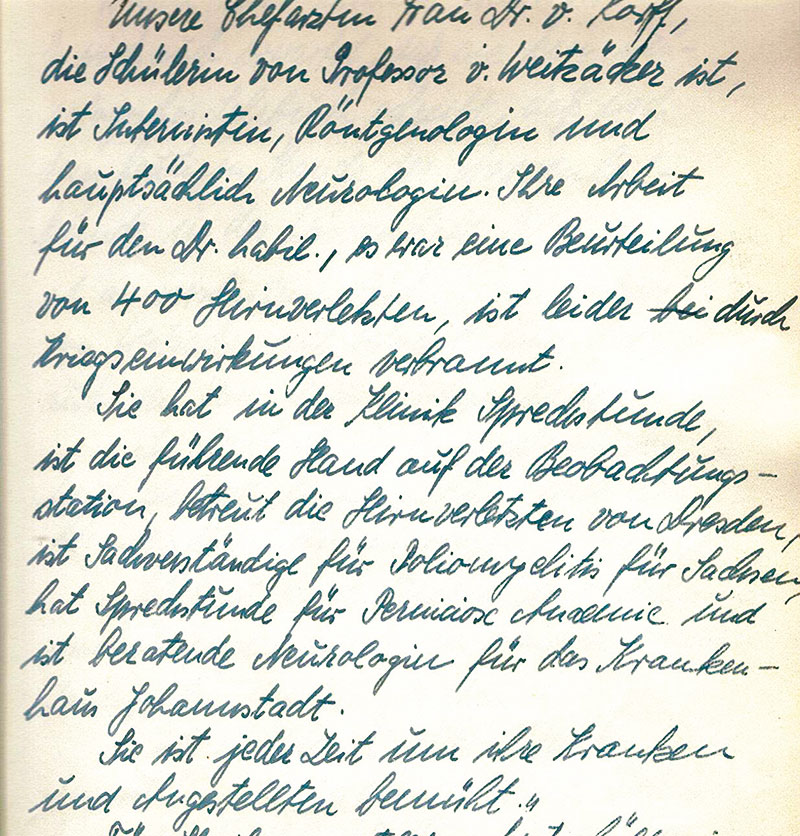 Unsere Chefärztin Frau Dr. v. Korff,
die Schülerin von Professor v. Weitzäcker ist,
ist Internistin, Röntgenologin und
hauptsächlich Neurologin. Ihre Arbeit
für den Dr. habil., es war eine Beurteilung
von 400 Hirnverletzten, ist leider bei durch
Kriegseinwirkungen verbrannt.
Sie hat in der Klinik Sprechstunde,
ist die führende Hand auf der Beobachtungs-
station, betreut die Hirnverletzten von Dresden,
ist Sachverständige für Poliomyelitis für Sachsen,
hat Sprechstunde für Perniciose Anaemie und
ist beratende Neurologin für das Kranken-
haus Johannstadt.
Sie ist jeder Zeit um ihre Kranken
und Angestellten bemüht."